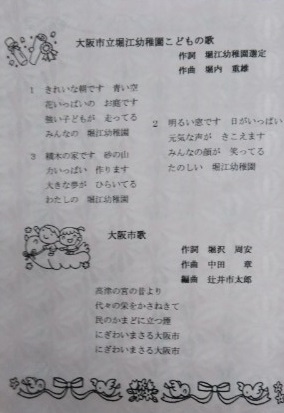 大阪市立堀江幼稚園こどもの歌
作詞 堀江幼稚園選定
作曲 堀内 重雄
1 きれいな朝です 青い空
花いっぱいの お庭です
強い子どもが 走ってる
みんなの 堀江幼稚園
2 明るい窓です 日がいっぱい
元気な声が きこえます
みんなの顔が 笑ってる
たのしい 堀江幼稚園
3 積木の家です 砂の山
力いっぱい 作ります
大きな夢が ひらいてる
わたしの 堀江幼稚園
大阪市歌
作詞 堀沢 周安
作曲 中田 章
編曲 辻井市太郎
高津の宮の昔より
代々の栄をかさねきて
民のかまどに立つ煙
にぎわいまさる大阪市
にぎわいまさる大阪市